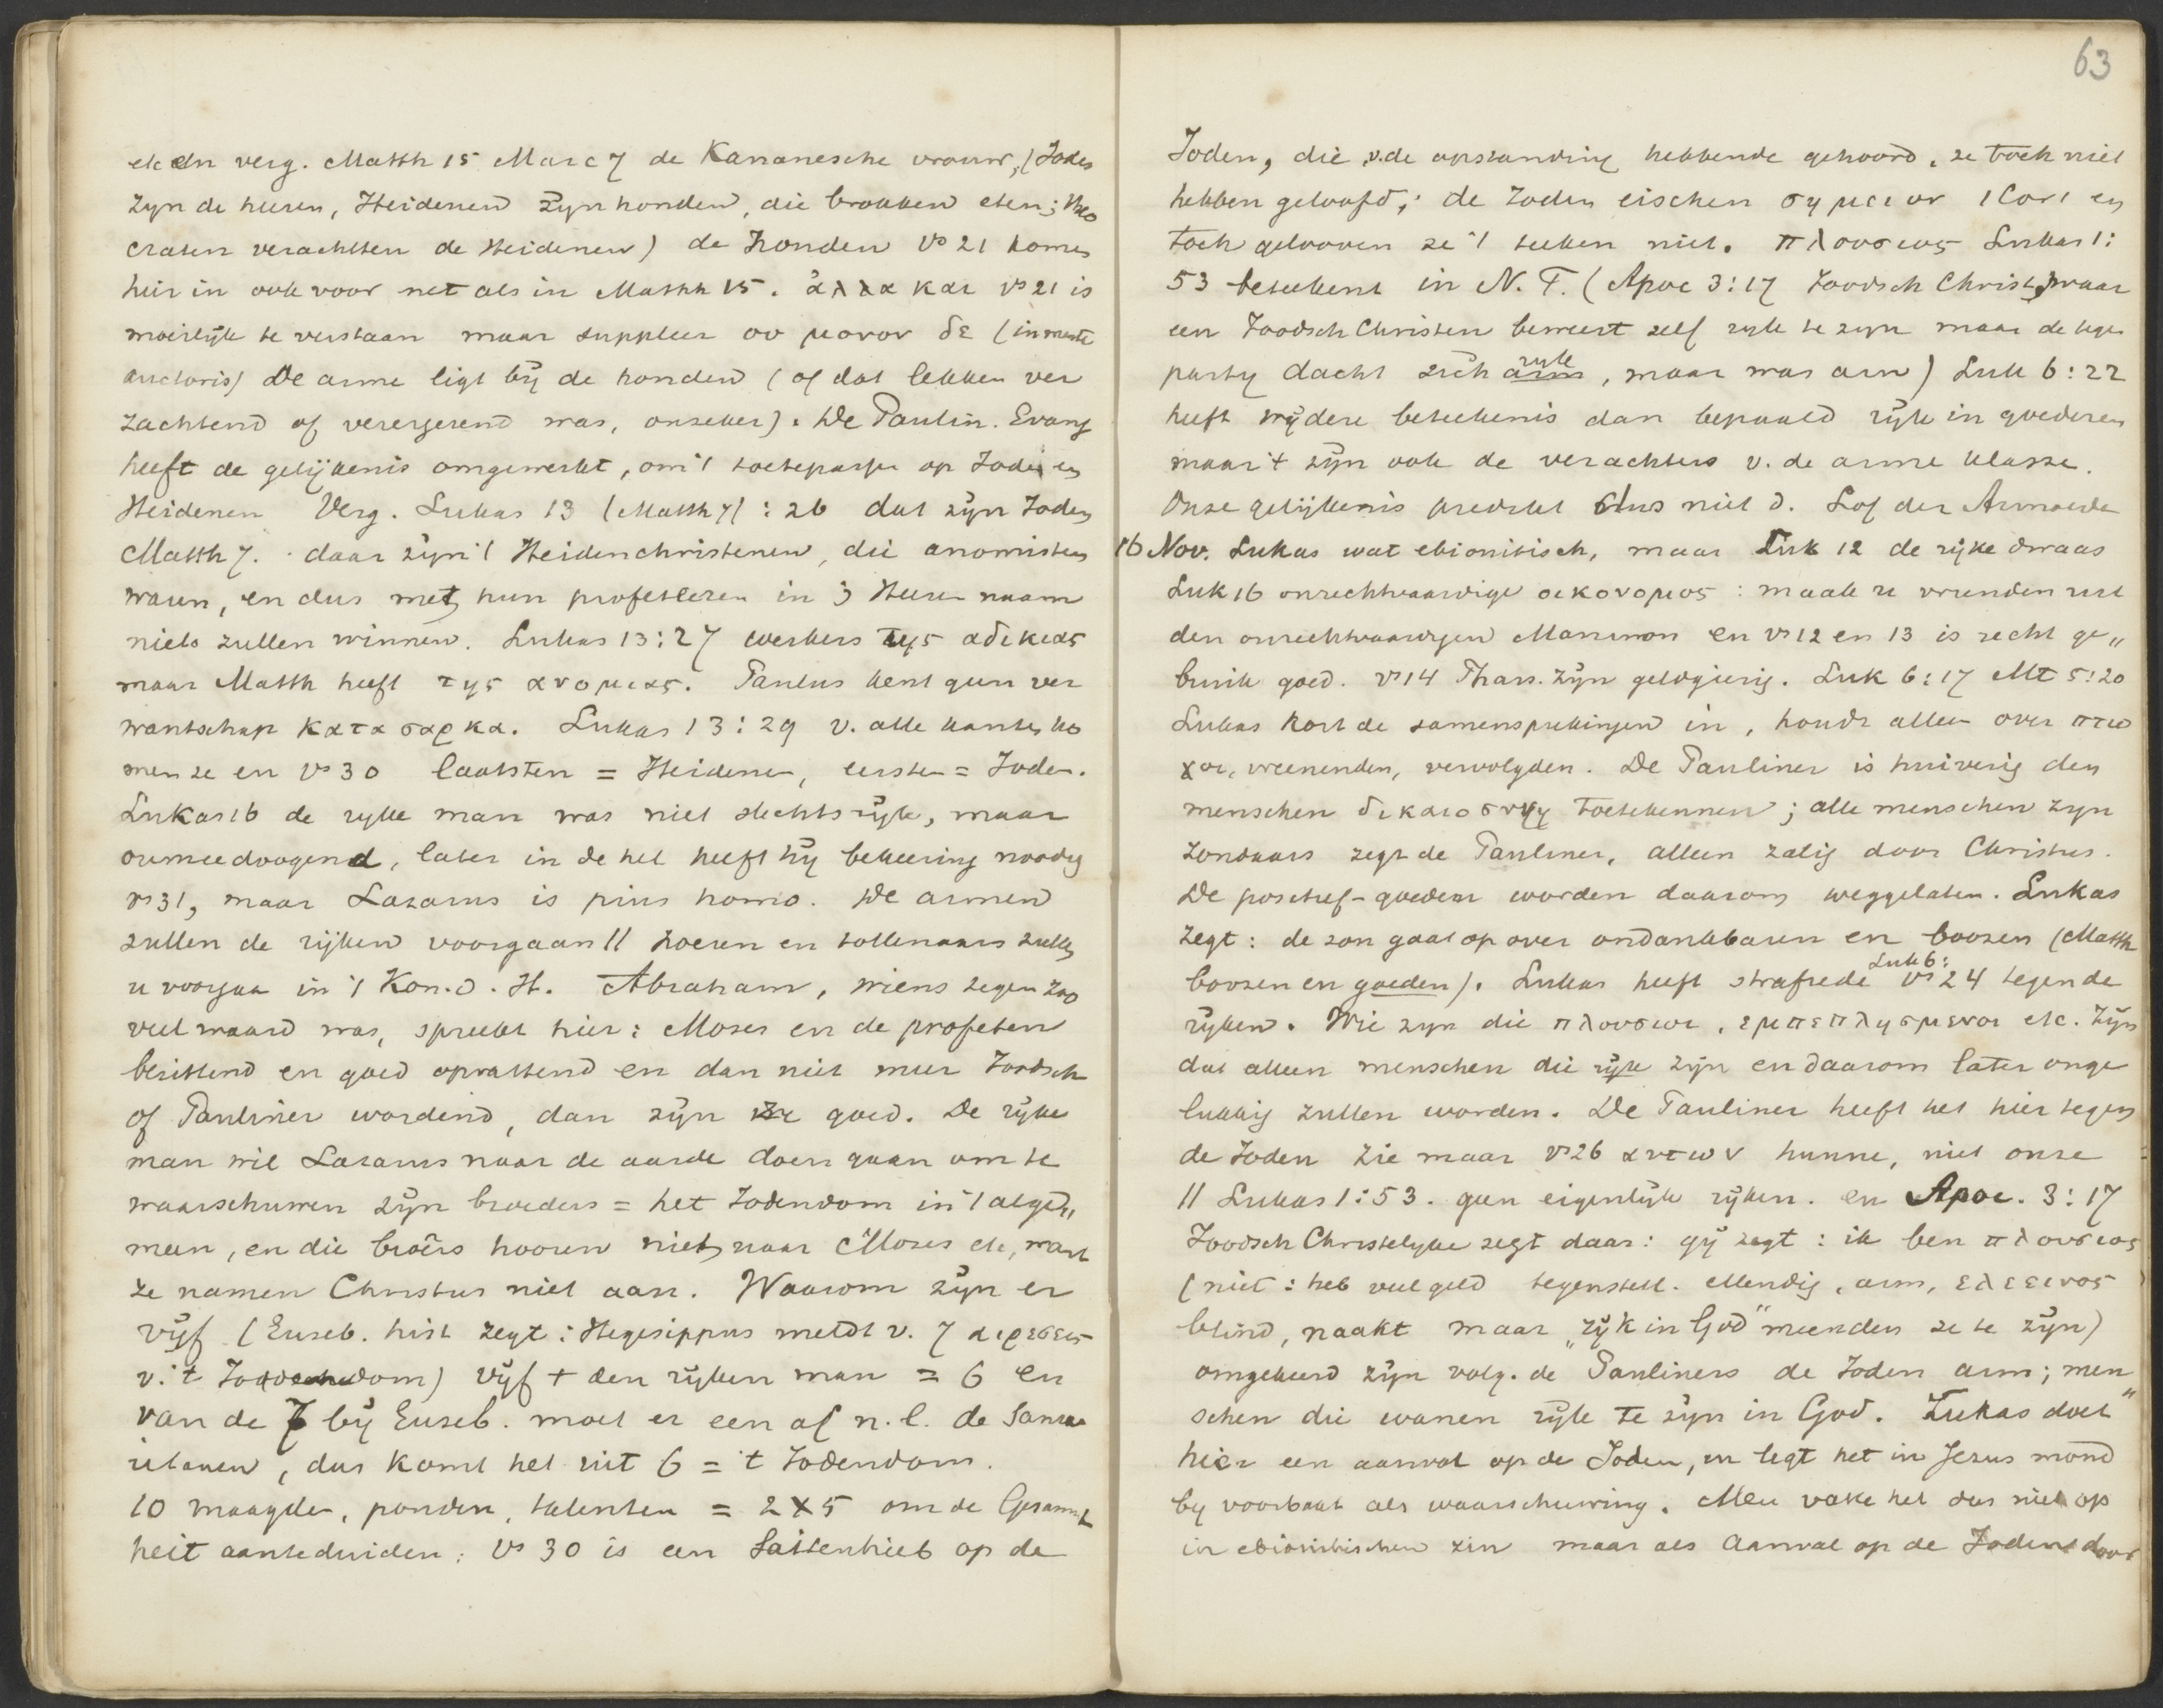 etc en verg. Matth 15 Marc 7 de Kananesche vrouw, (Joden
zyn de heeren, Heidenen zyn honden, die brokken eten; Theo
craten verachtten de Heidenen) de honden vs 21 komen
hier in ook voor net als in Matth 15. ἀλλα και vs 21 is
moeilyk te verstaan maar suppleer ου μονον δε (in mente
auctoris) De arme ligt bÿ de honden (of dat lekken ver
zachtend of verergerend was, onzeker). De Paulin. Evang
heeft de gelÿkenis omgewerkt, om 't toetepassen op Joden en
Heidenen Verg. Lukas 13 (Matth 7) : 26 dat zÿn Joden
Matth 7. daar zÿn 't Heidenchristenen, die anomisten
waren, en dus met hun profeteren in 's Heeren naam
niets zullen winnen. Lukas 13:27 werkers της αδικιας
maar Matth heeft της ανομιας. Paulus kent geen ver
wantschap κατα σαρκα. Lukas 13:29 v. alle kanten ko
men ze en vs 30 laatsten = Heidenen, eersten = Joden.
Lukas 16 de ryke man was niet slechts rÿk, maar
onmeedoogend, later in de hel heeft hÿ bekeering noodig
vs 31, maar Lazarus is pius homo. De armen
zullen de rÿken voorgaan // hoeren en tollenaars zullen
u voorgaan in 't Kon. d. H. Abraham, wiens zegen zoo
veel waard was, spreekt hier: Moses en de profeten
bezittend en goed opvattend en dan niet meer Joodsch
of Pauliner wordend, dan zÿn ze goed. De rÿke
man wil Lazarus naar de aarde doen gaan om te
waarschuwen zÿn broeders = het Jodendom in 't alge„
meen, en die broêrs hooren niet naar Moses etc, want
ze namen Christus niet aan. Waarom zÿn er
vÿf (Euseb. hist zegt: Hegesippus meldt v. 7 αιρεσεις
v. 't Jodendom) vÿf + den rÿken man = 6 en
van de 7 bÿ Euseb. moet er een af n.l. de Sama
ritanen, dus komt het uit 6 = 't Jodendom.
10 maagden, ponden, talenten = 2 X 5 om de Gesammt
heit aanteduiden; vs 30 is een Seitenhieb op de
63
Joden, die v. de opstanding hebbende gehoord, ze toch niet
hebben geloofd; de Joden eischen σημειον 1 Cor 1 en
toch gelooven ze 't teeken niet. πλουσιος Lukas 1:
53 beteekent in N. T. (Apoc 3:17 Joodsch Christ, waar
een Joodsch Christen beweert zelf ryk te zyn maar de tegen
party dacht zich arm rÿk, maar was arm) Luk 6:22
heeft wÿdere beteekenis dan bepaald rÿk in goederen
maar 't zÿn ook de verachters v. de arme klasse.
Onze gelÿkenis predikt dus niet d. Lof der Armoede
16 Nov. Lukas wat ebionitisch, maar Luk 12 de rÿke dwaas
Luk 16 onrechtvaardige οικονομος : maak u vrienden uit
den onrechtvaardigen Mammon en vs 12 en 13 is recht ge„
bruik goed. vs 14 Phars. zÿn geldgierig. Luk 6:17 Mt 5:20
Lukas kort de samensprekingen in, houdt alleen over πτω
χοι, weenenden, vervolgden. De Pauliner is huiverig den
menschen δικαιοσυνη toetekennen; alle menschen zyn
zondaars zegt de Pauliner, alleen zalig door Christus.
De positief-goeden worden daarom weggelaten. Lukas
zegt: de zon gaat op over ondankbaren en boozen (Matth
boozen en goeden). Lukas heeft strafrede Luk 6: vs 24 tegen de
rÿken. Wie zyn die πλουσιοι, εμπεπλησμενοι etc. Zÿn
dat alleen menschen die rÿk zÿn en daarom later onge
lukkig zullen worden. De Pauliner heeft het hier tegen
de Joden zie maar vs 26 αυτων hunne, niet onze
// Lukas 1:53. geen eigenlÿke rÿken. en Apoc. 3:17
Joodsch Christelyke zegt daar: gÿ zegt: ik ben πλουσιος
(niet: heb veel geld tegenstell. ellendig, arm, ελεεινος
blind, naakt maar „rÿk in God" meenden ze te zÿn)
omgekeerd zÿn volg. de Pauliners de Joden arm; men„
schen die wanen rÿk te zÿn in God. Lukas doet
hier een aanval op de Joden, en legt het in Jezus mond
by voorbaat als waarschuwing. Men vatte het dus niet op
in ebionitischen zin maar als aanval op de Joden door